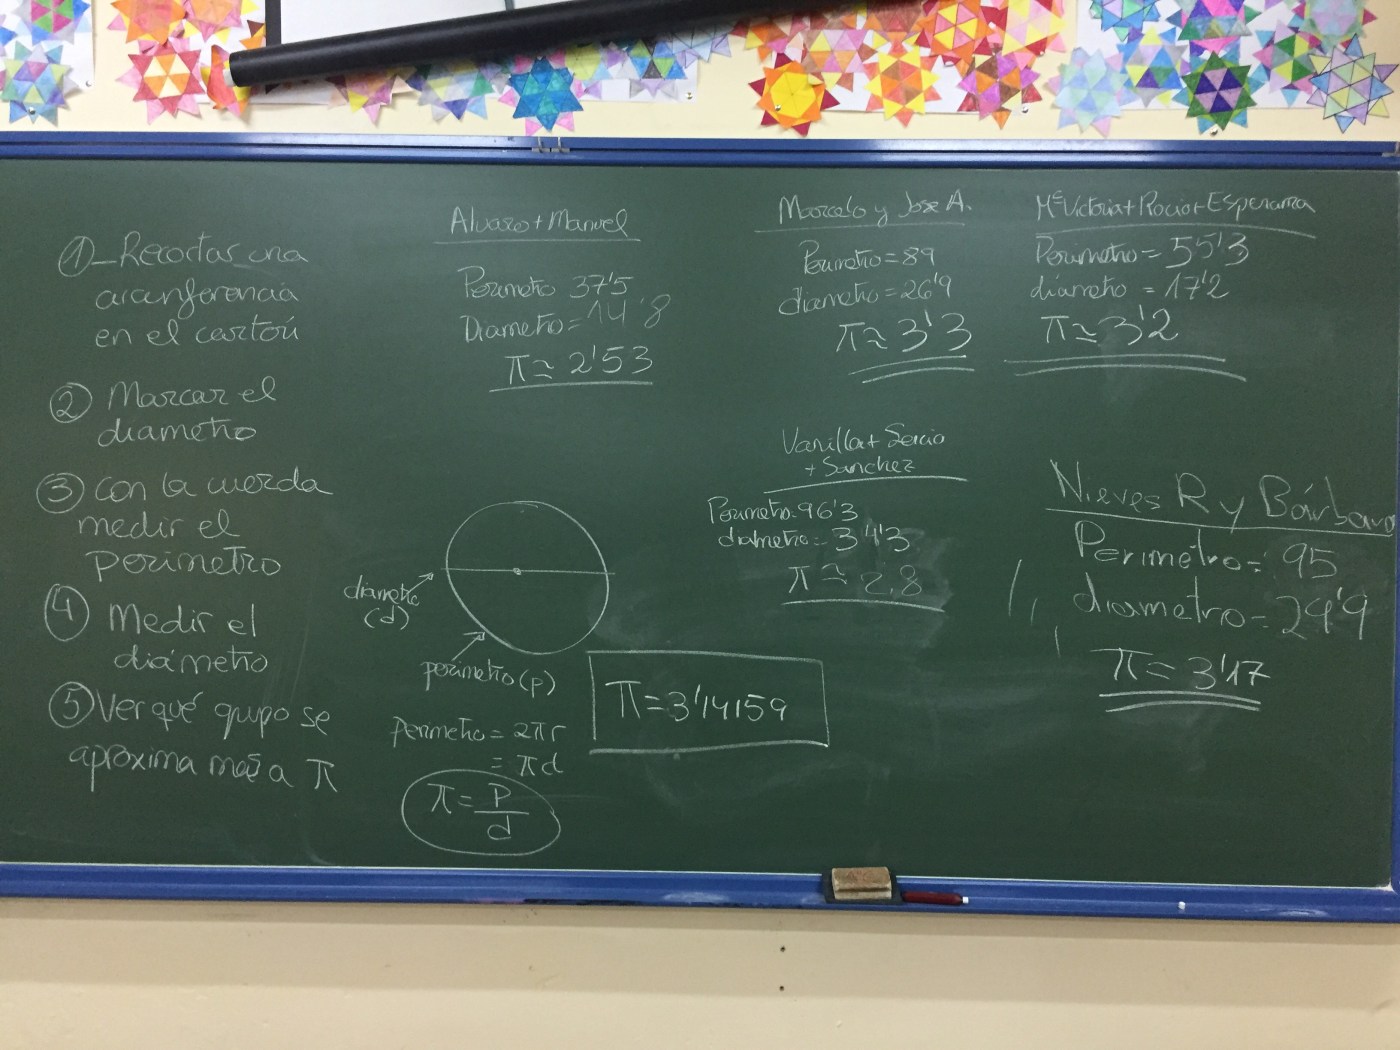 1 - Recortar una
circunferencia
en el cartón
2 Marcar el
diametro
3 con la cuerda
medir el
perimetro
4 Medir el
diámetro
5 Ver qué grupo se
aproxima más a π
Alvaro + Manuel
Perimetro 37'5
Diametro = 14'8
π ≃ 2'53
diametro
(d)
perimetro (p)
perimetro = 2πr
= πd
π = p/d
π = 3'14159
Marcelo y Jose A.
Perimetro = 89
diametro = 26'9
π ≃ 3'3
Mª Victoria + Rocio + Esperanza
Perimetro = 55'3
diámetro = 17'2
π ≃ 3'2
Varilla + Sergio
+ Sanchez
Perimetro = 96'3
diametro = 34'3
π ≃ 2,8
Nieves R y Bárbara
Perimetro = 95
diametro = 29'9
π = 3'17